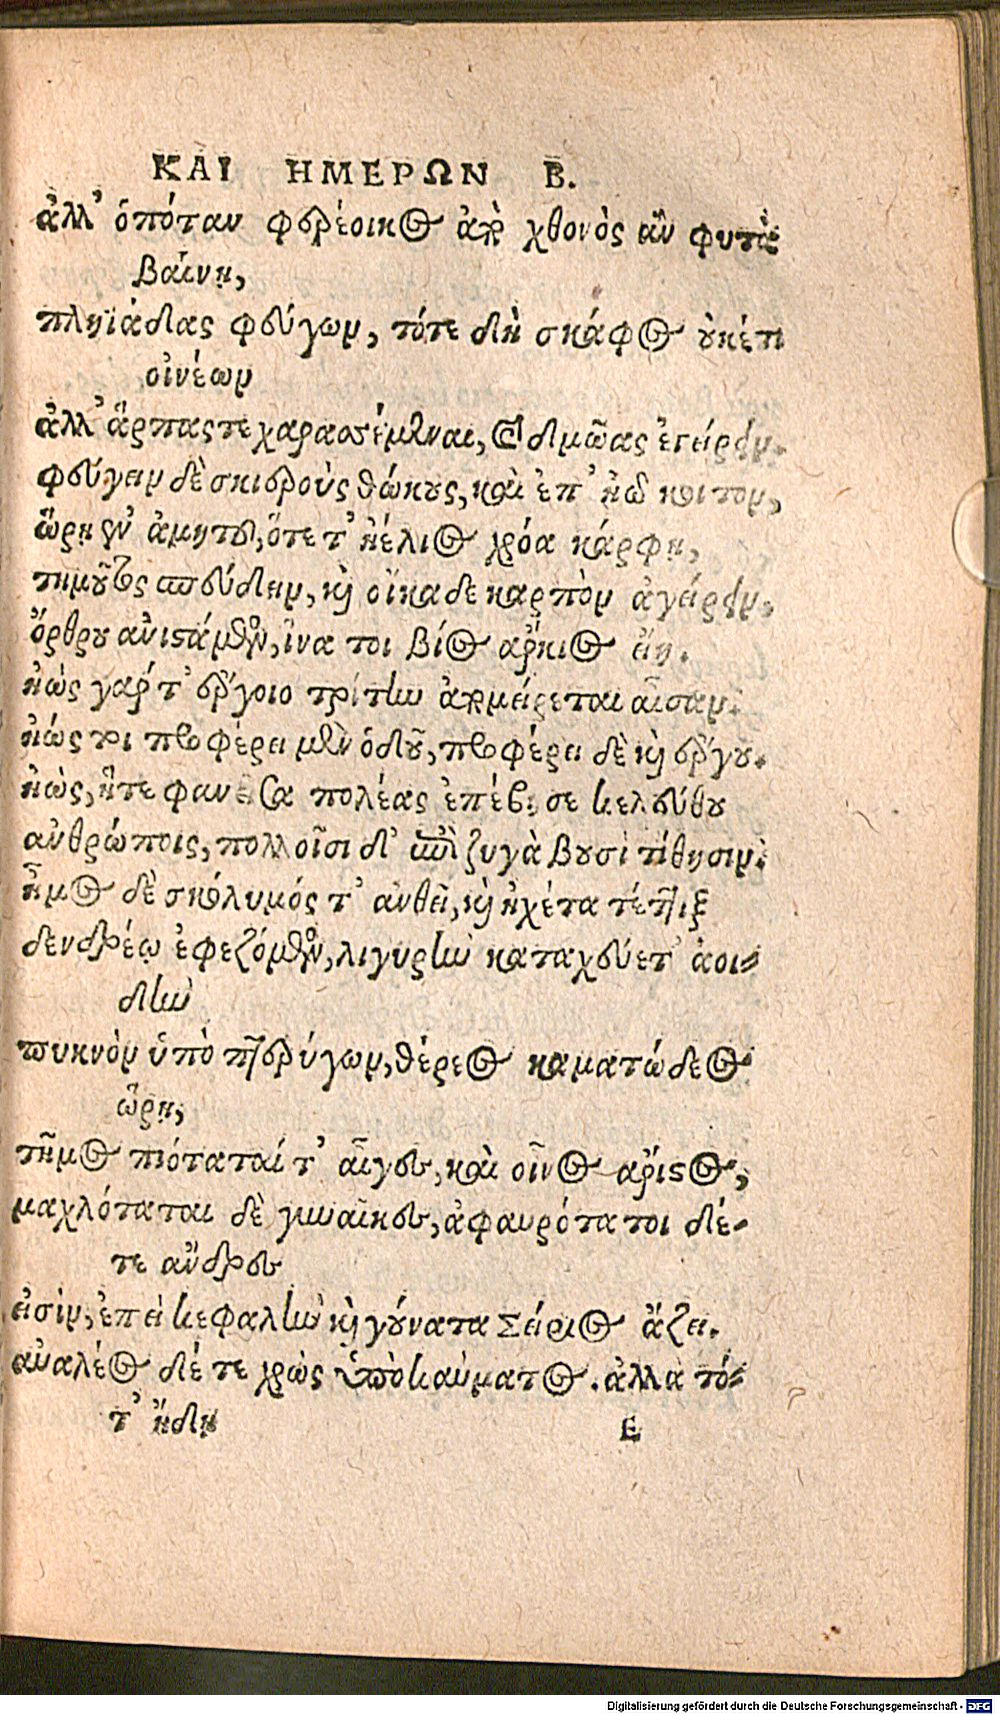 ΚΑΙ ΗΜΕΡΩΝ Β.
ἀλλ' ὁπόταν φερέοικος ἀπὸ χθονὸς ἂν φυτὰ
βαίνῃ,
πληϊάδας φεύγων, τότε δὴ σκάφος οὐκέτι
οἰνέων
ἀλλ' ἅρπας τε χαρασσέμεναι, καὶ δμῶας ἐγείρειν.
φεύγειν δὲ σκιεροὺς θώκους, καὶ ἐπ' ἠῶ κοιτον,
ὥρῃ ἐν ἀμητοῦ, ὅτε τ' ἠέλιος χρόα κάρφῃ,
τημοῦτος σπεύδειν, καὶ οἴκαδε καρπὸν ἀγείρειν,
ὄρθρου ἀνιστάμενος, ἵνα τοι βίος ἄρκιος εἴη.
ἠὼς γάρ τ' ἔργοιο τρίτην ἀπομείρεται αἶσαν.
ἠώς τοι προφέρει μὲν ὁδοῦ, προφέρει δὲ καὶ ἔργου.
ἠὼς, ἥτε φανεῖσα πολέας ἐπέβησε κελεύθου
ἀνθρώποις, πολλοῖσι δ' ἐπὶ ζυγὰ βουσὶ τίθησιν.
ἦμος δὲ σκόλυμός τ' ἀνθεῖ, καὶ ἠχέτα τέττιξ
δενδρέῳ ἐφεζόμενος, λιγυρὴν καταχεύετ' ἀοι-
δὴν
πυκνὸν ὑπὸ πτερύγων, θέρεος καματώδεος
ὥρῃ,
τῆμος πιόταταί τ' αἶγες, καὶ οἶνος ἄριστος,
μαχλόταται δὲ γυναῖκες, ἀφαυρότατοι δέ-
τε ἄνδρες
εἰσὶν, ἐπεὶ κεφαλὴν καὶ γούνατα Σείριος ἄζει.
αὐαλέος δέ τε χρὼς ὑπὸ καύματος. ἀλλὰ τό-
τ' ἤδη
E
Digitalisierung gefördert durch die Deutsche Forschungsgemeinschaft - DFG